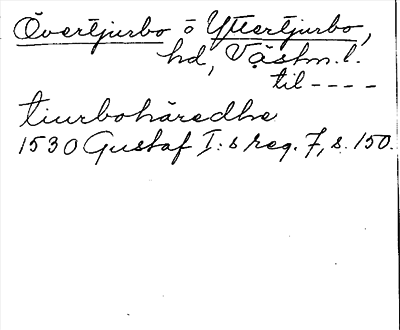 Övertjurbo o Yttertjurbo,
hd, Västm. l.
til ----
tiurbohäredhe
1530 Gustaf I:s reg. 7, s. 150.